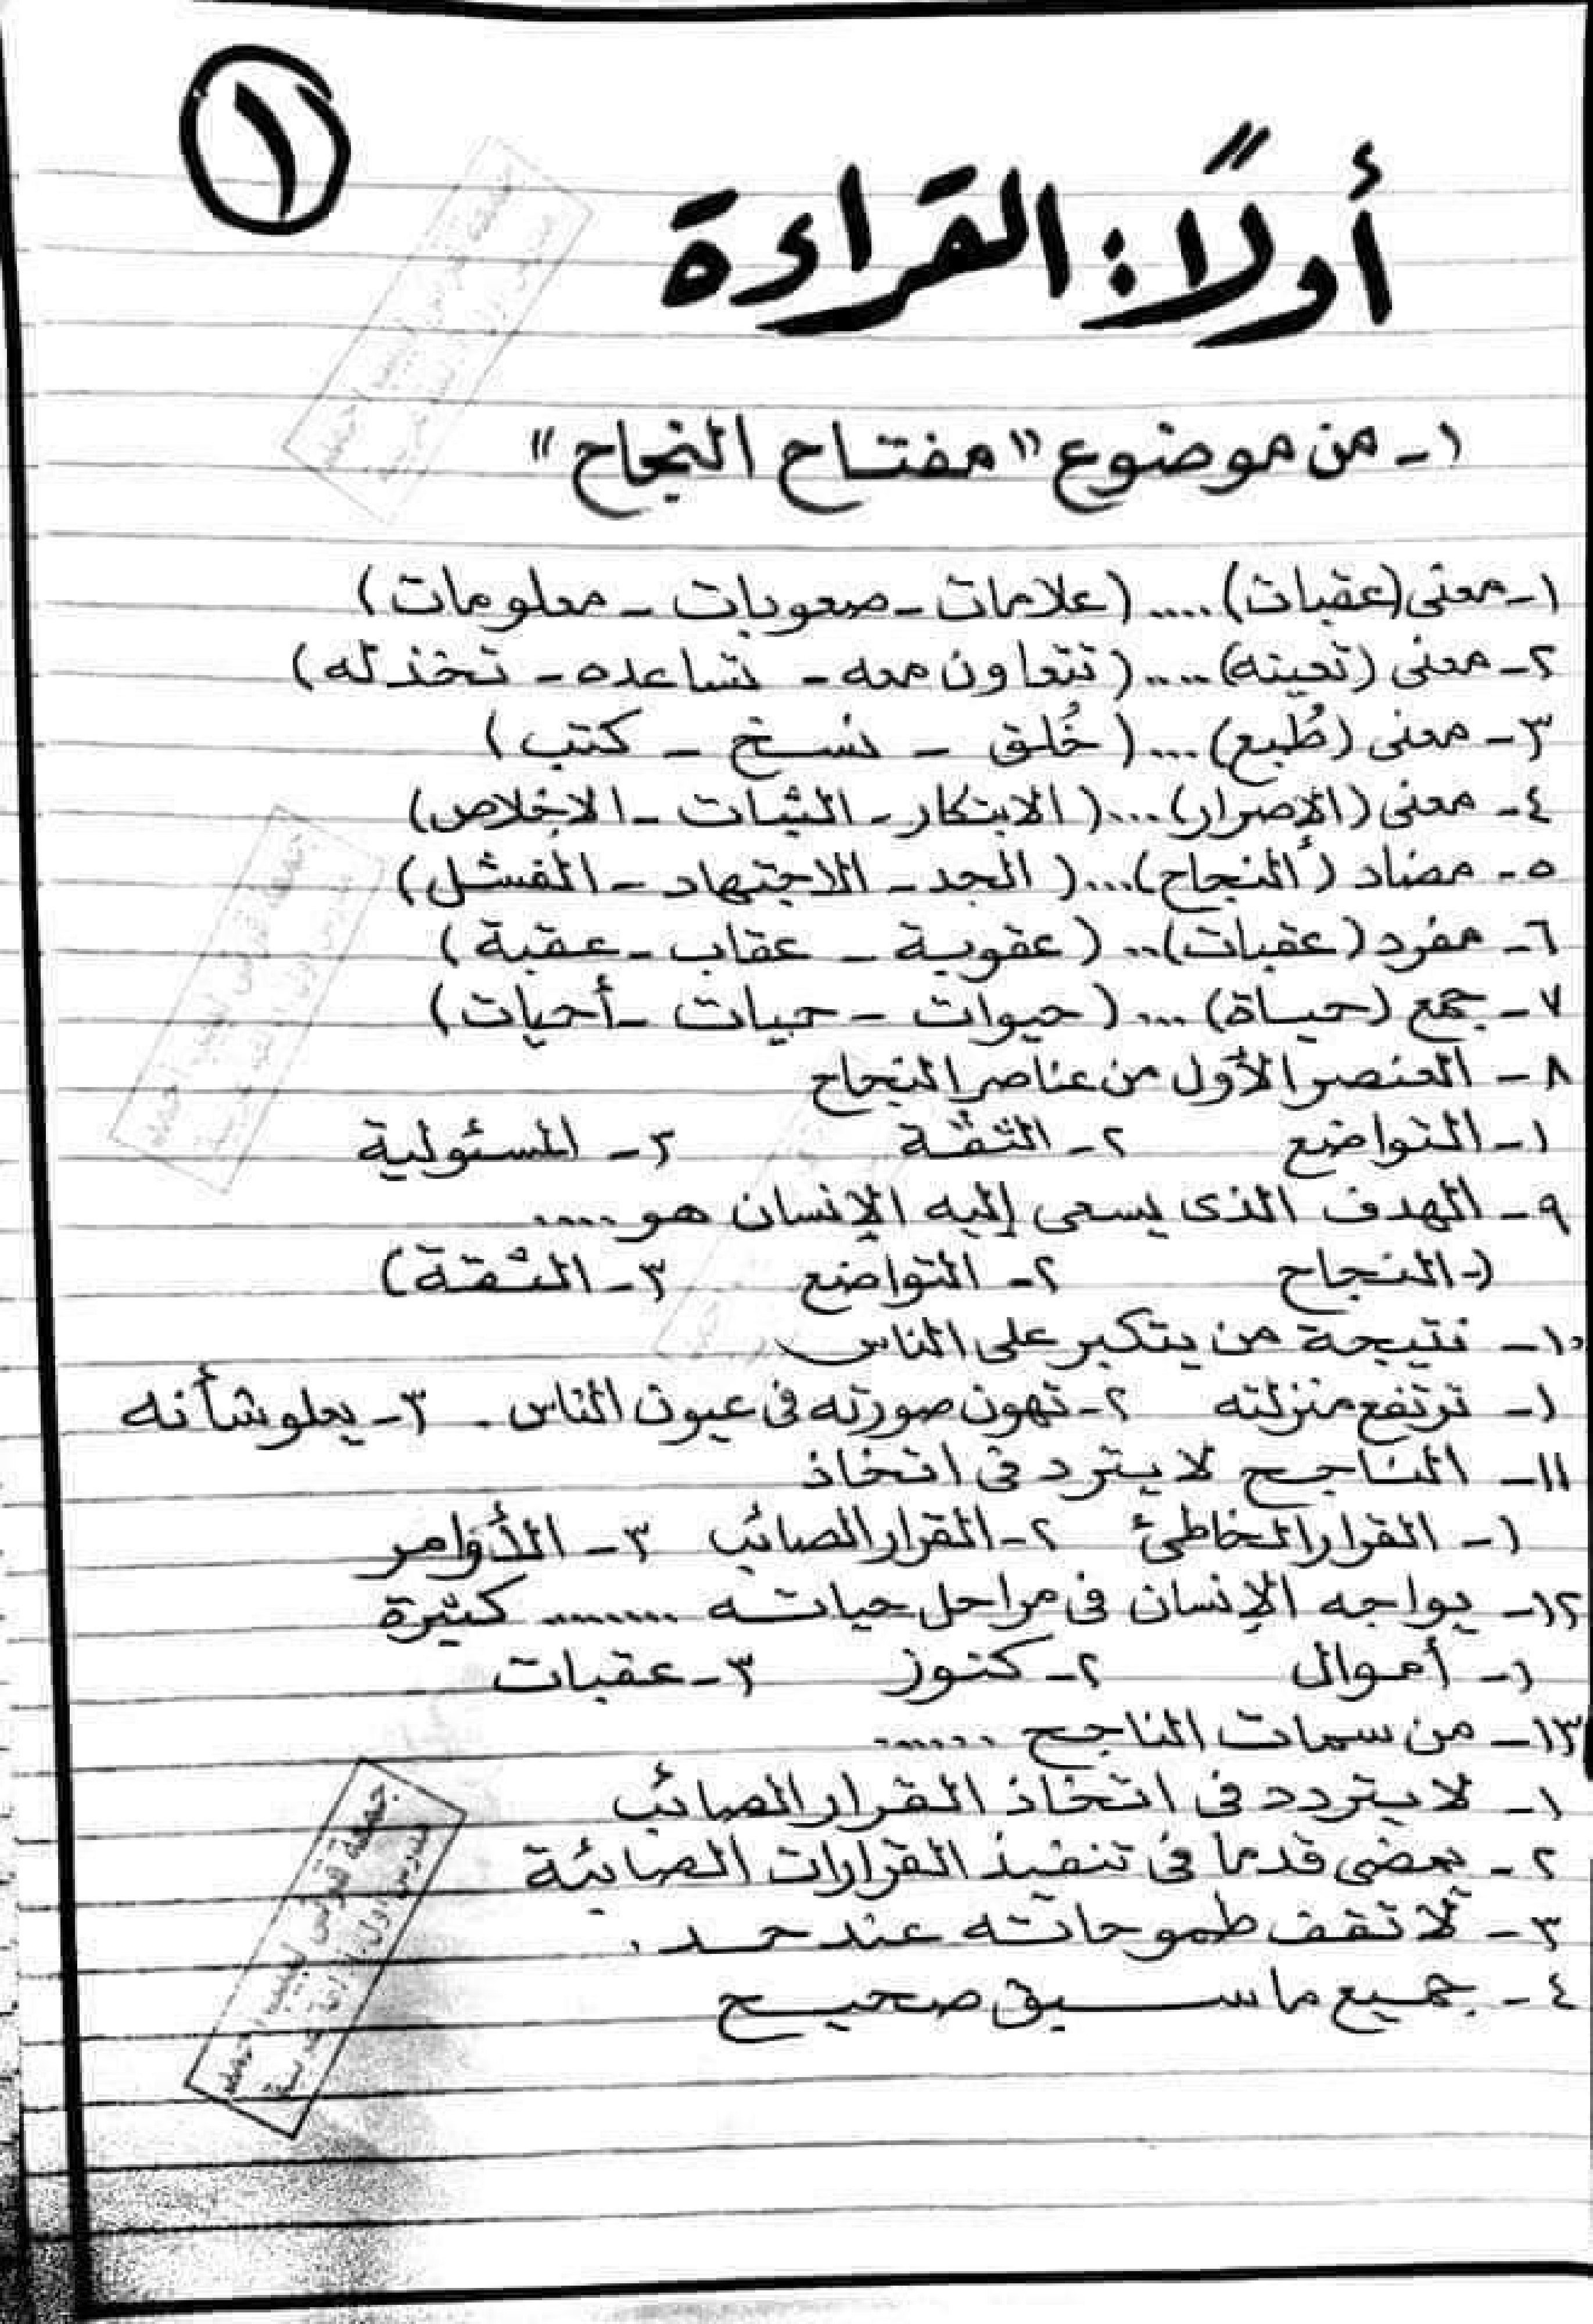 ١
أولاً: القراءة
١- من موضوع "مفتاح النجاح"
١- معنى (عقبات) .... (علامات - صعوبات - معلومات)
٢- معنى (تعينه) ..... (تتعاون معه - تساعده - تخذله)
٣- معنى (طُبع) ... (خُلق - نسخ - كتب)
٤- معنى (الإصرار) .... (الابتكار - الثبات - الاخلاص)
٥- مضاد (النجاح) .... (الجد - الاجتهاد - الفشل)
٦- مفرد (عقبات) .. (عقوبة - عقاب - عقبة)
٧- جمع (حياة) ... (حيوات - حييات - أحيات)
٨- العنصر الأول من عناصر النجاح
١- التواضع ٢- الثقة ٣- المسئولية
٩- الهدف الذى يسعى إليه الإنسان هو .....
(- النجاح ٢- التواضع ٣- الثقة)
١٠- نتيجة من يتكبر على الناس
١- ترتفع منزلته ٢- تهون صورته فى عيون الناس . ٣- يعلو شأنه
١١- الناجح لا يترد فى اتخاذ
١- القرار الخاطئ ٢- القرار الصائب ٣- الأوامر
١٢- يواجه الإنسان فى مراحل حياته ........ كثيرة
١- أموال ٢- كنوز ٣- عقبات
١٣- من سمات الناجح ......
١- لا يتردد فى اتخاذ القرار الصائب
٢- يمضى قدما فى تنفيذ القرارات الصائبة
٣- لا تقف طموحاته عند حد .
٤- جميع ما سبق صحيح